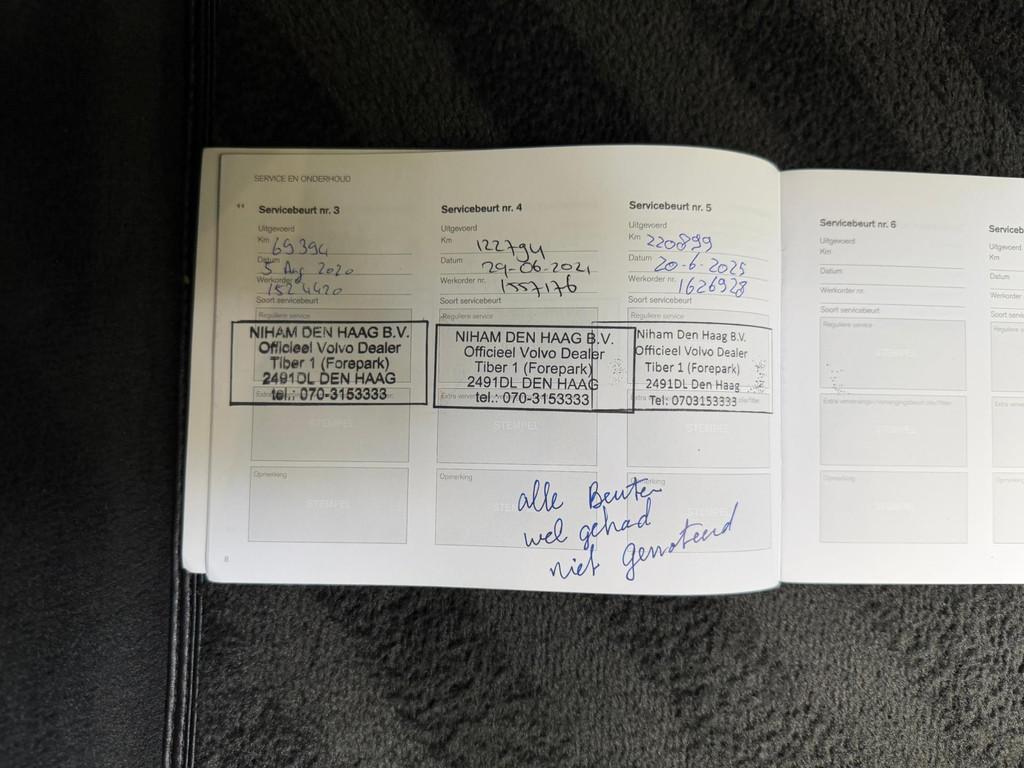 SERVICE EN ONDERHOUD
Servicebeurt nr. 3
Uitgevoerd
Km 69394
Datum 5 Aug 2020
Werkorder nr. 1524420
Soort servicebeurt
Reguliere service
NIHAM DEN HAAG B.V.
Officieel Volvo Dealer
Tiber 1 (Forepark)
2491DL DEN HAAG
tel.: 070-3153333
STEMPEL
Opmerking
STEMPEL
8
Servicebeurt nr. 4
Uitgevoerd
Km 122794
Datum 29-06-2021
Werkorder nr. 1557176
Soort servicebeurt
Reguliere service
NIHAM DEN HAAG B.V.
Officieel Volvo Dealer
Tiber 1 (Forepark)
2491DL DEN HAAG
tel.: 070-3153333
STEMPEL
Opmerking
Servicebeurt nr. 5
Uitgevoerd
Km 220899
Datum 20-6-2025
Werkorder nr. 1626928
Soort servicebeurt
Reguliere service
Niham Den Haag B.V.
Officieel Volvo Dealer
Tiber 1 (Forepark)
2491DL Den Haag
Tel: 0703153333
STEMPEL
alle Beurten
wel gehad
niet genoteerd
Servicebeurt nr. 6
Uitgevoerd
Km
Datum
Werkorder nr.
Soort servicebeurt
Reguliere service
STEMPEL
STEMPEL
Opmerking
STEMPEL
Serviceb
Uitgevoerd
Km
Datum
Werkorder
Soort